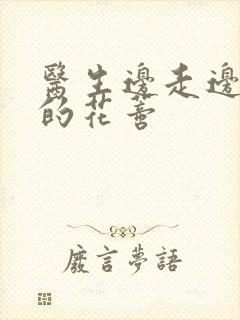 醫生邊走邊
的花
廢言夢語